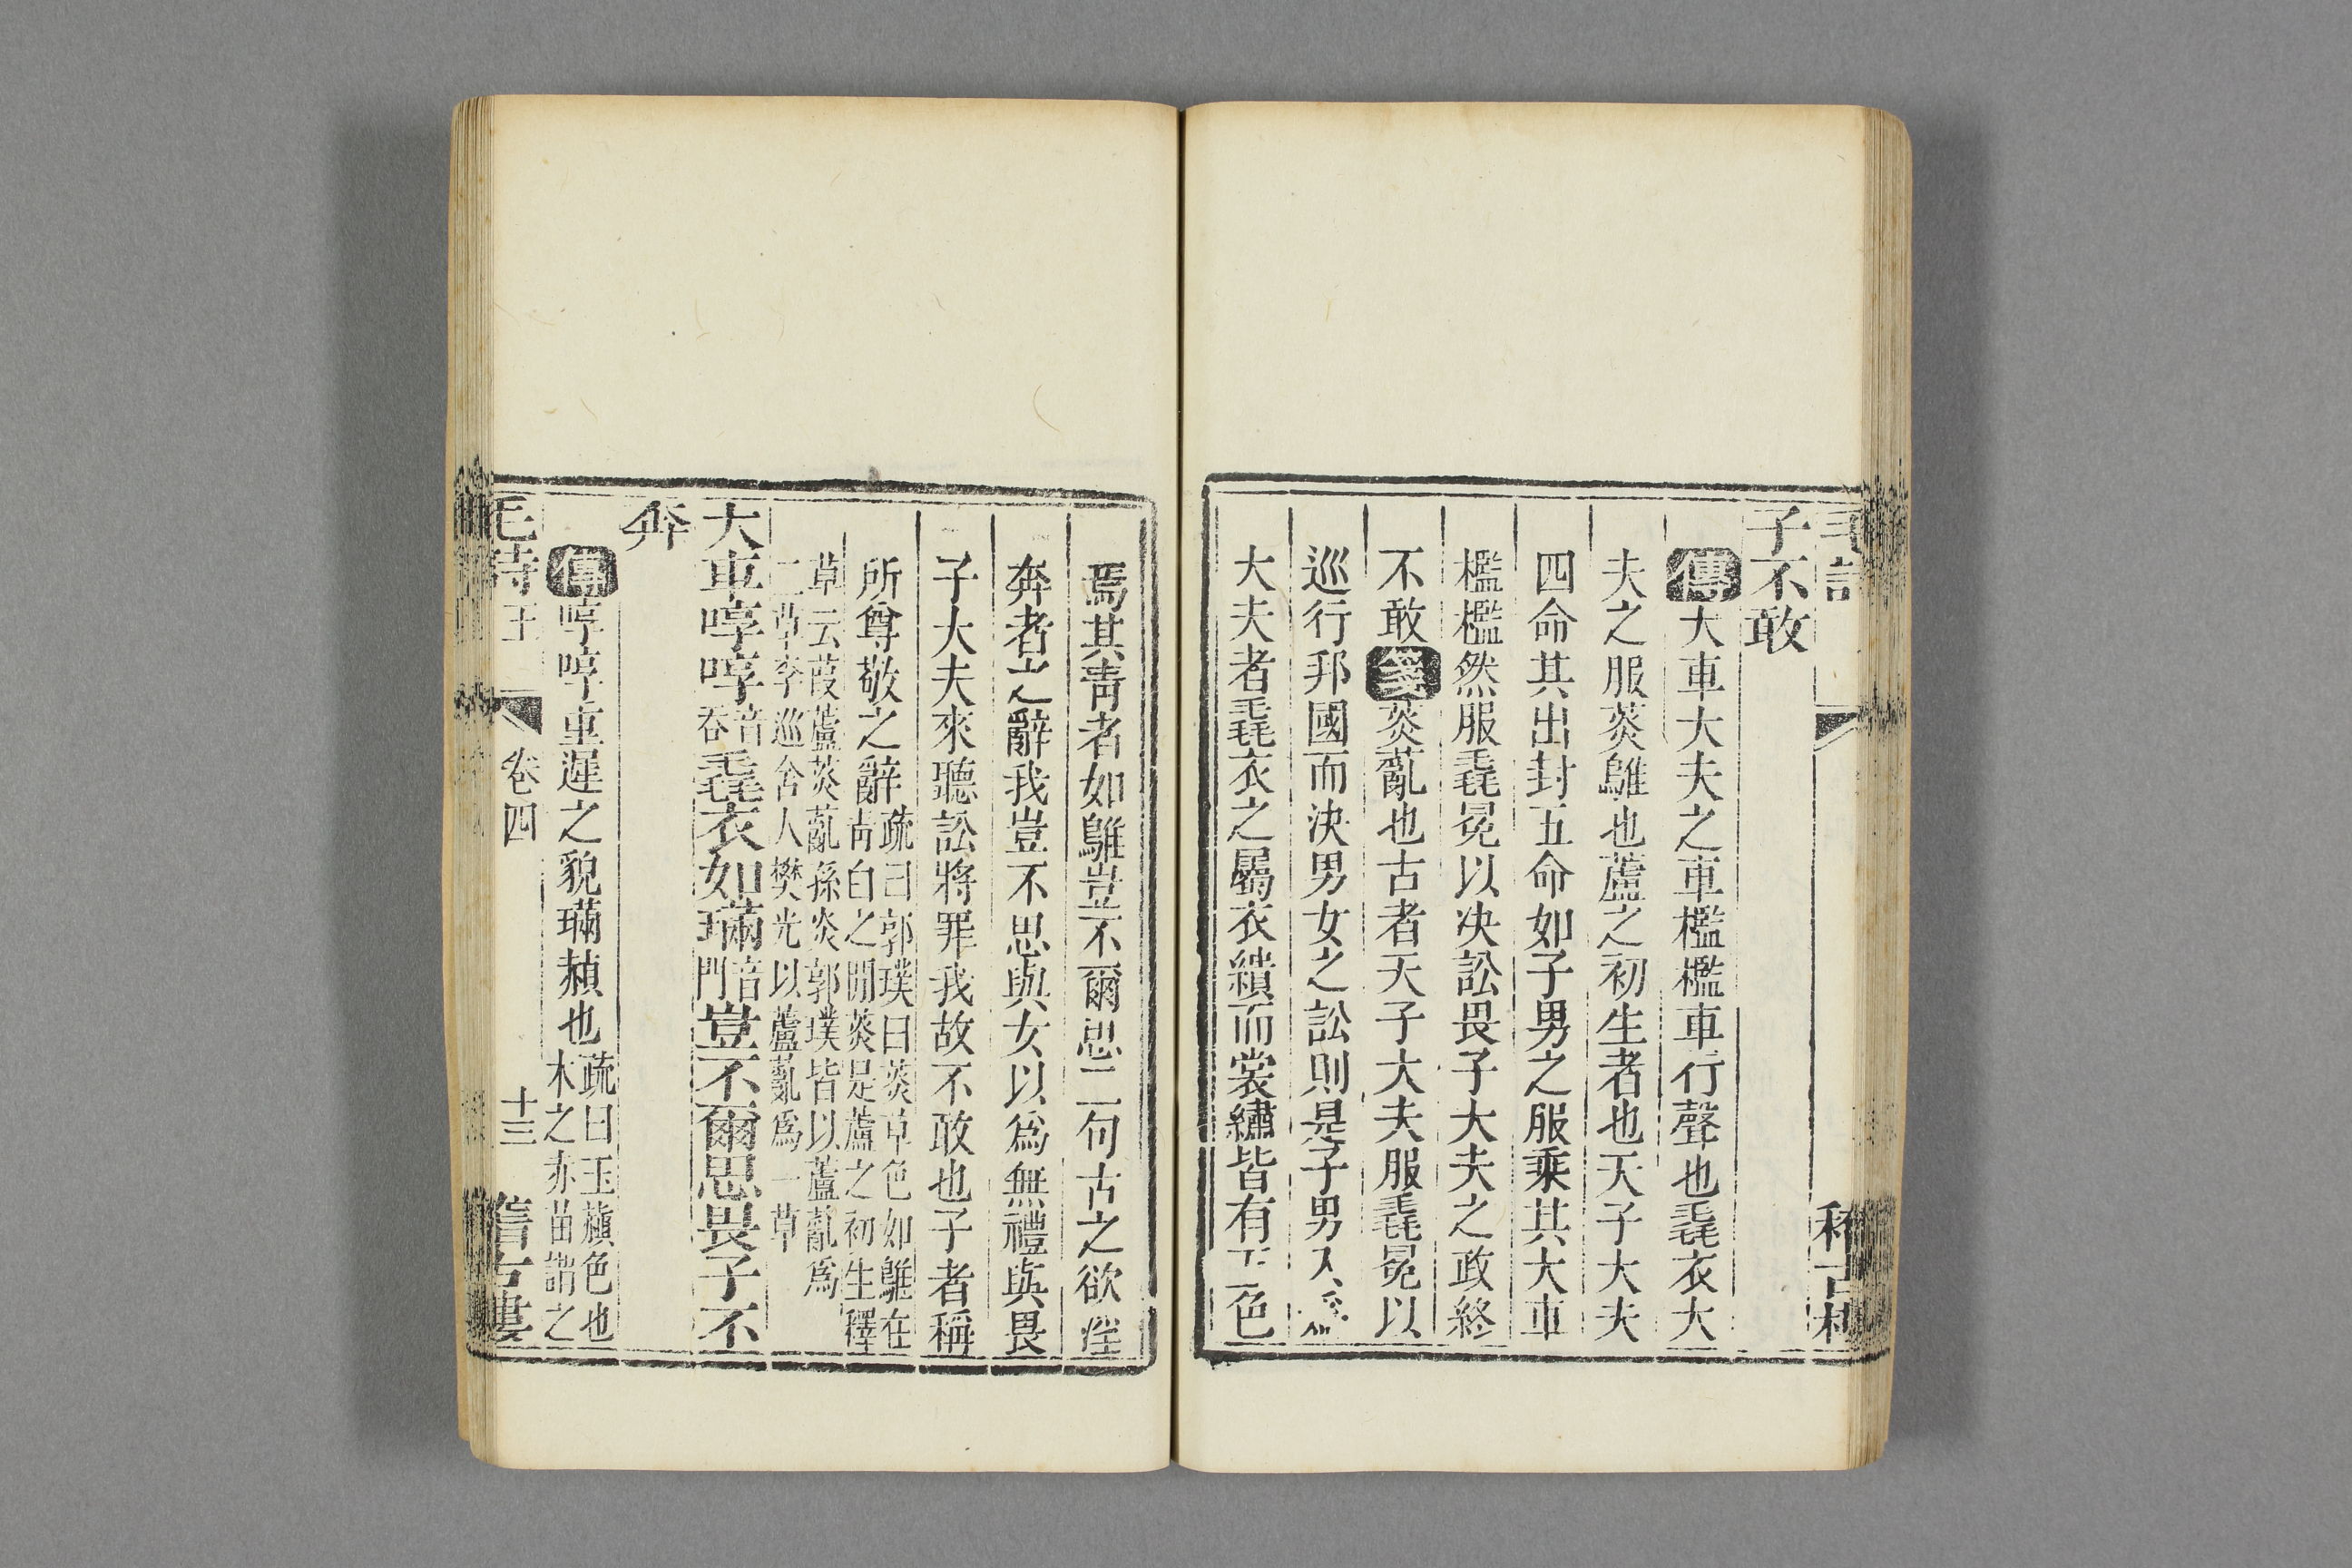 子不敢
傳大車大夫之車檻檻車行聲也毳衣大
夫之服菼鵻也蘆之初生者也天子大夫
四命其出封五命如子男之服乘其大車
檻檻然服毳冕以決訟畏子大夫之政終
不敢箋菼薍也古者天子大夫服毳冕以
巡行邦國而決男女之訟則是子男入爲
大夫者毳衣之屬衣繢而裳繡皆有五色
焉其靑者如鵻豈不爾思二句古之欲淫
奔者之辭我豈不思與女以爲無禮與畏
子大夫來聽訟將罪我故不敢也子者稱
所尊敬之辭疏曰郭璞曰菼草色如鵻在
靑白之閒菼是蘆之初生釋
草云葭蘆菼薍孫炎郭璞皆以蘆薍爲
二草李巡舍人樊光以蘆薍爲一草
大車啍啍音吞毳衣如璊音門豈不爾思畏子不
奔
傳啍啍重遲之貌璊赬也疏曰玉赬色也
木之赤苗謂之
毛詩王 卷四 十三